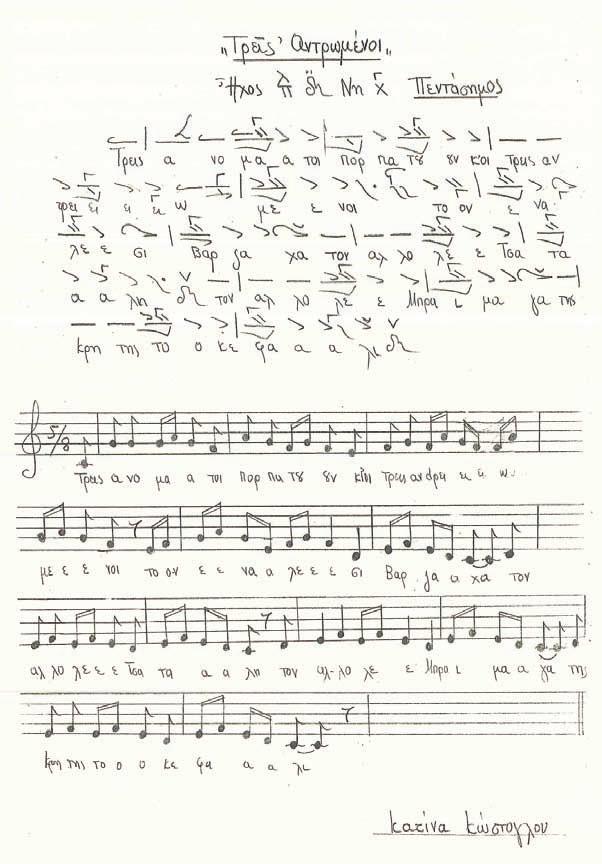 „Τρεῖς Αντρωμένοι„
Ἦχος Νη Πεντάσημος
Τρεις α νο μα α τοι πορ πα τȣ ȣν κ̓ οι τρεις αν
τρει ει ει κ ω με ε νοι το ον ε να
λε ε σι Βαρ ζα χα τον αλ λο λε ε Τσα τα
α α λη τον αλ λο λε ε Μπρα ι μα γα της
κρη της το ο κε φα α α λι
5/8
Τρεις α νο μα α τοι πορ πα τȣ ȣν κ̓ οι τρεις αν δρει
με ε ε νοι το ον ε ε να α λε ε ε σι Βαρ ζα α χα τον
αλ λο λε ε ε Τσα τα α α λη τον αλ-λο λε ε Μπρα ι μα α γα της
κρη της το ο ο κε φα α α λι
Κατίνα Κώστογλου